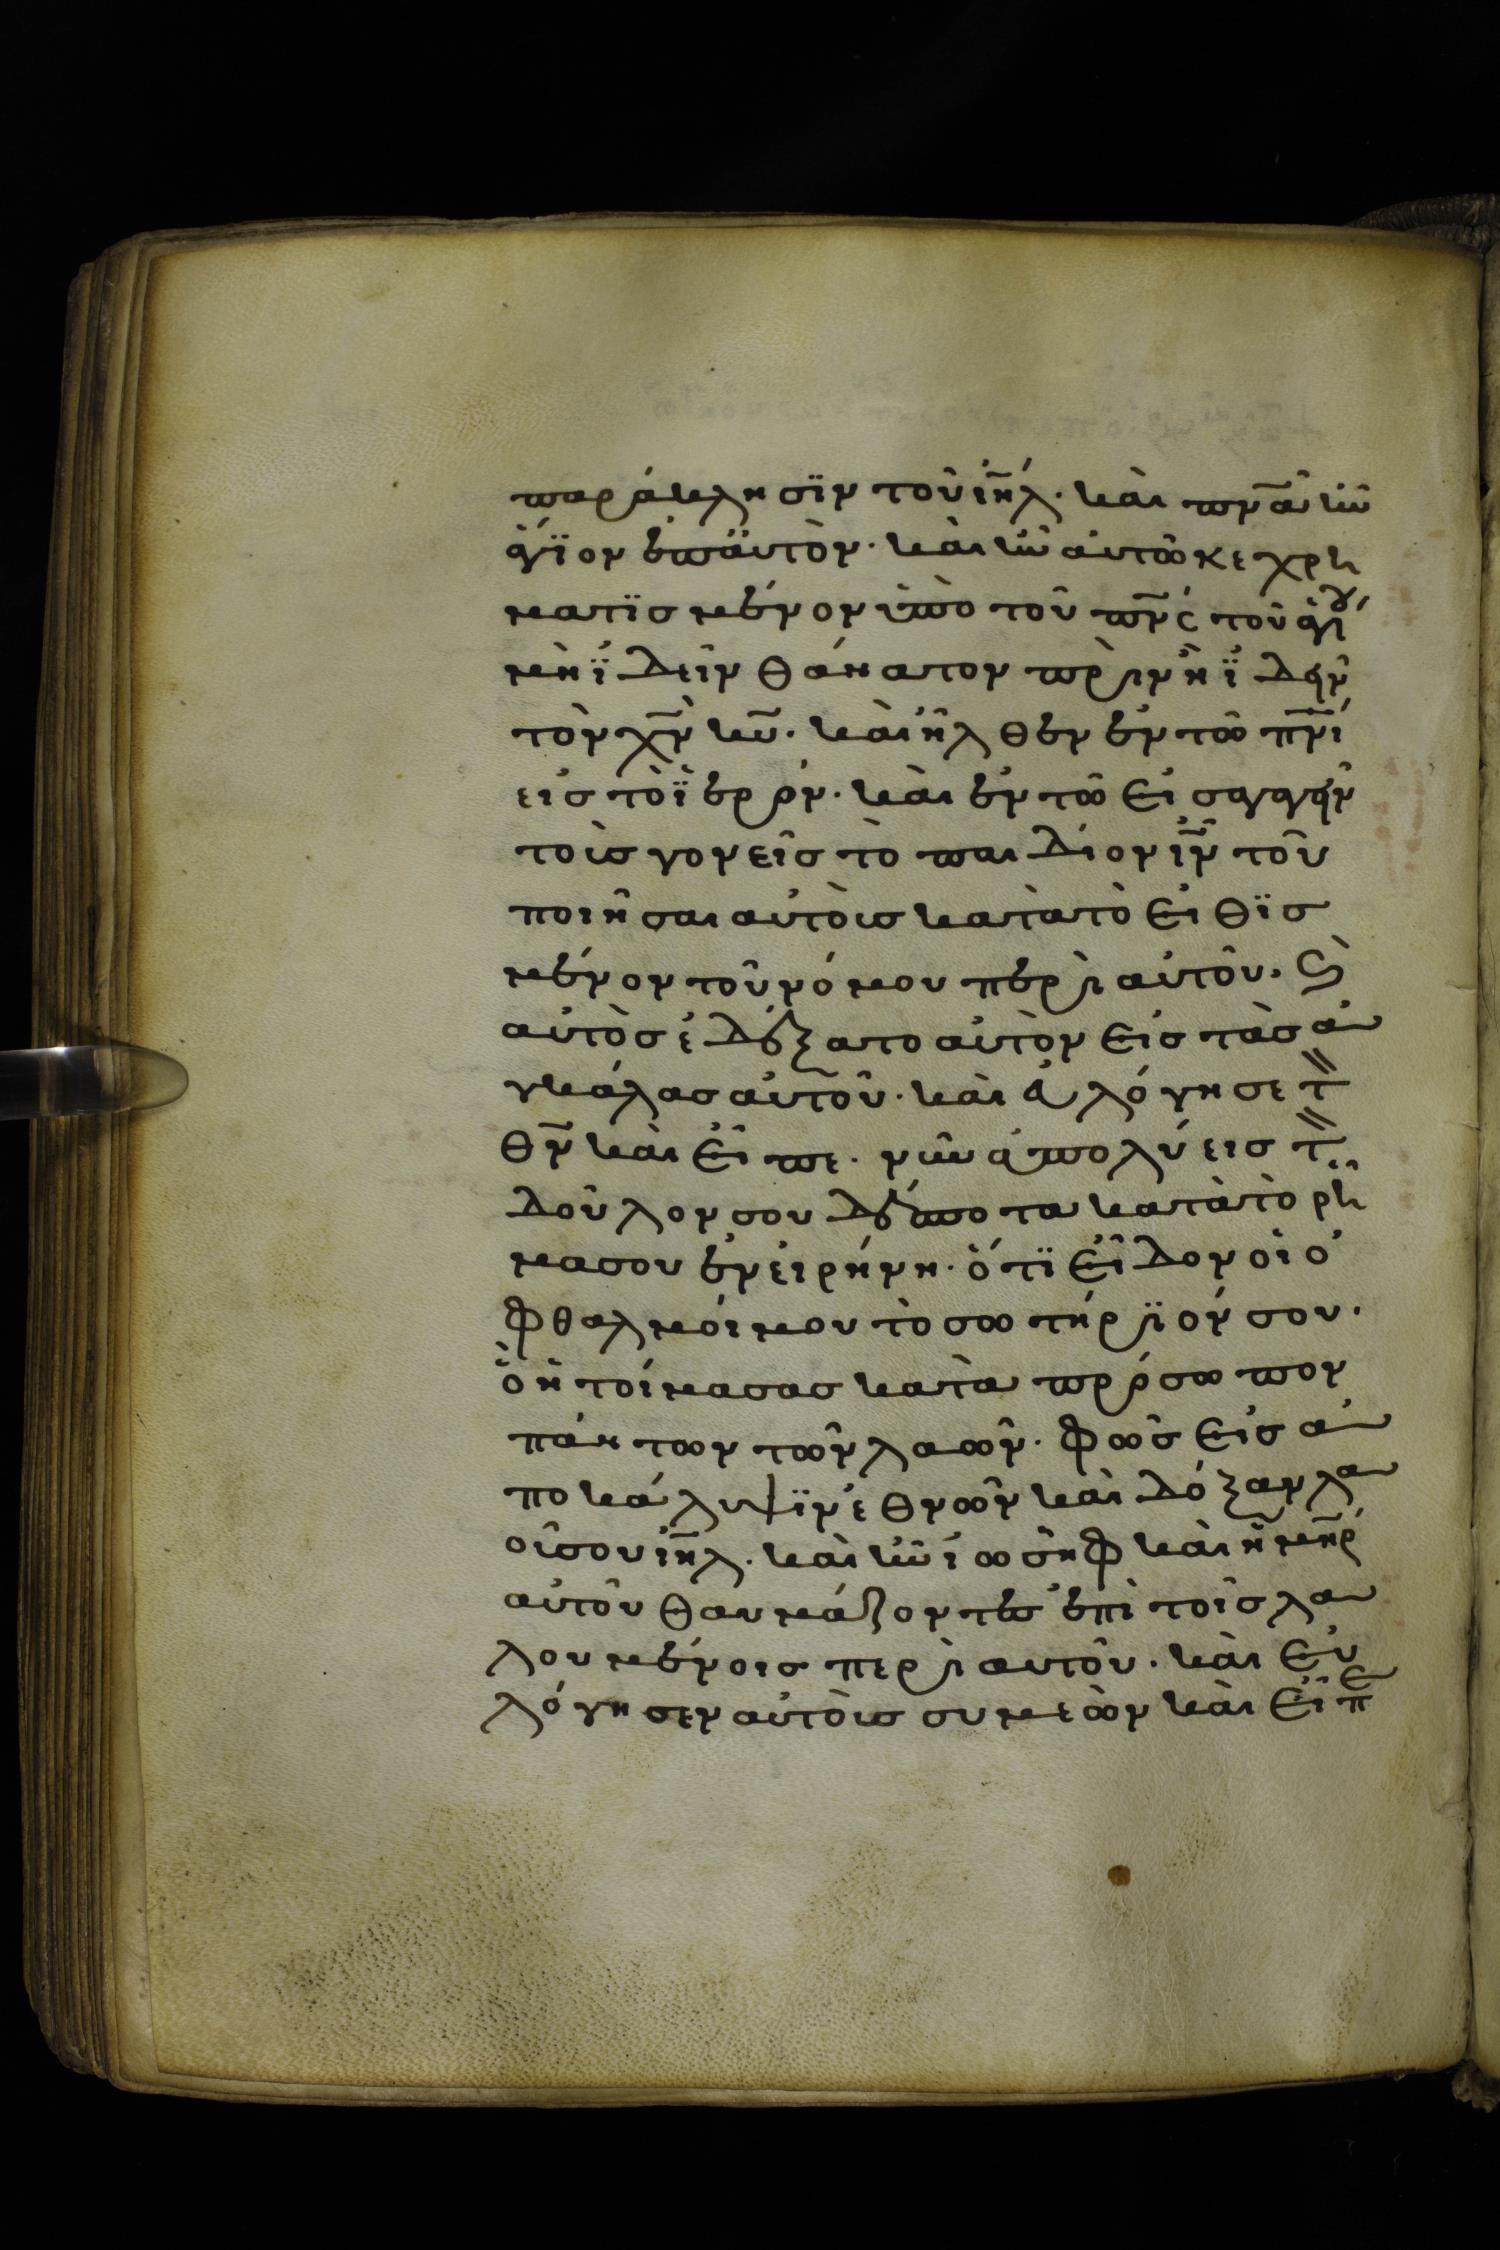 παράκλησϊν τοῦ ἰη̅λ· καὶ πνα̅ ἦν
ἅγϊον ἐπ' ἀυτὸν· καὶ ἦν ἀυτῶ κεχρη
ματϊσμένον ὑπὸ τοῦ πνς̅ τοῦ ἁγίου
μὴ ϊδεῖν θάνατον πρὶν ἢ ϊδῃν
τὸν χν̅ κυ̅· καὶ ἦλθεν ἐν τῶ πνι̅
εἰσ τὸ ϊερόν· καὶ ἐν τῶ εἰσαγαγῃν
τοὺσ γονεῖσ τὸ παιδίον ιν̅ τοῦ
ποιῆσαι αὐτοὺσ κατὰ τὸ εἰθϊσ
μένον τοῦ νόμου περὶ αὐτοῦ· Ϛ
αὐτὸσ ἐδέξατο αὐτὸν εἰσ τὰσ ἀ
γκάλασ αὐτοῦ· καὶ ἐυλόγησε τ
θν̅ καὶ εἶπε· νῦν ἀπολύεισ τ
δοῦλον σου δέσποτα κατὰ τὸ ρῆ
μα σου ἐν εἰρήνη· ὅτϊ εἶδον οἱ ὀ
φθαλμόι μου τὸ σωτήρϊόν σου·
ὃ ἡτοίμασασ κατὰ πρόσωπον
πάντων τῶν λαῶν· φῶσ εἰσ ἀ
ποκάλυψϊν ἐθνῶν καὶ δόξαν λα
οῦ σου ἰη̅λ· καὶ ἦν ἰωσὴφ καὶ ἡ μη̅ρ
αὐτοῦ θαυμάζοντεσ ἐπὶ τοῖσ λα
λουμένοισ περὶ αυτοῦ· καὶ εὐ
λόγησεν αὐτοὺσ συμεὼν καὶ εἶπε